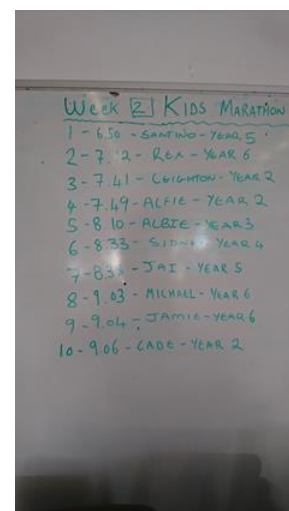 Week 2 KIDS MARATHON
1 - 6.50 - SANTINO - YEAR 5
2 - REX - YEAR 6
3 - 7.41 - LEIGHTON - YEAR 2
4 - 7.49 - ALFIE - YEAR 2
5 - 8.10 - ALBIE - YEAR 3
6 - 8.33 - SIDNEY - YEAR 4
7 - JAI - YEAR 5
8 - 9.03 - MICHAEL - YEAR 6
9 - 9.04 - JAMIE - YEAR 6
10 - 9.06 - CADE - YEAR 2